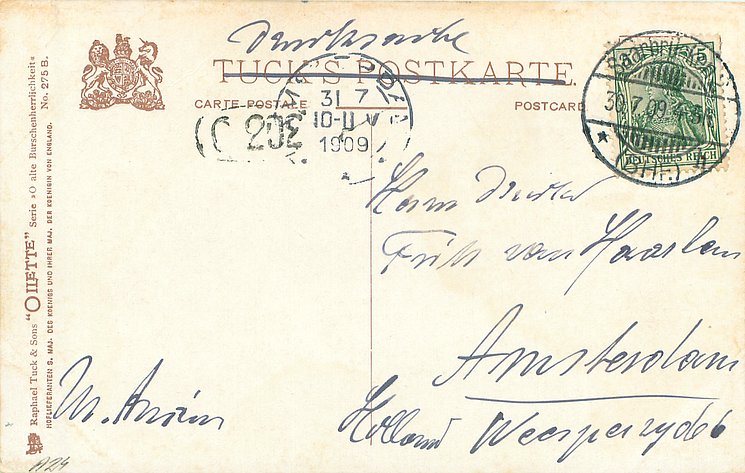 Drucksache
TUCK'S POSTKARTE.
CARTE-POSTALE
POSTCARD
Saarbrücken
30.7.09
(BHF.)
DEUTSCHES REICH
31 7
10-11 V
1909
202
Herrn
Frits van Haarlem
Amsterdam
Holland Weesperzyde 6
Raphael Tuck & Sons "OILETTE" Serie »O alte Burschenherrlichkeit« No. 275 B.
HOFLIEFERANTEN S. MAJ. DES KOENIGS UND IHRER MAJ. DER KOENIGIN VON ENGLAND.
A24